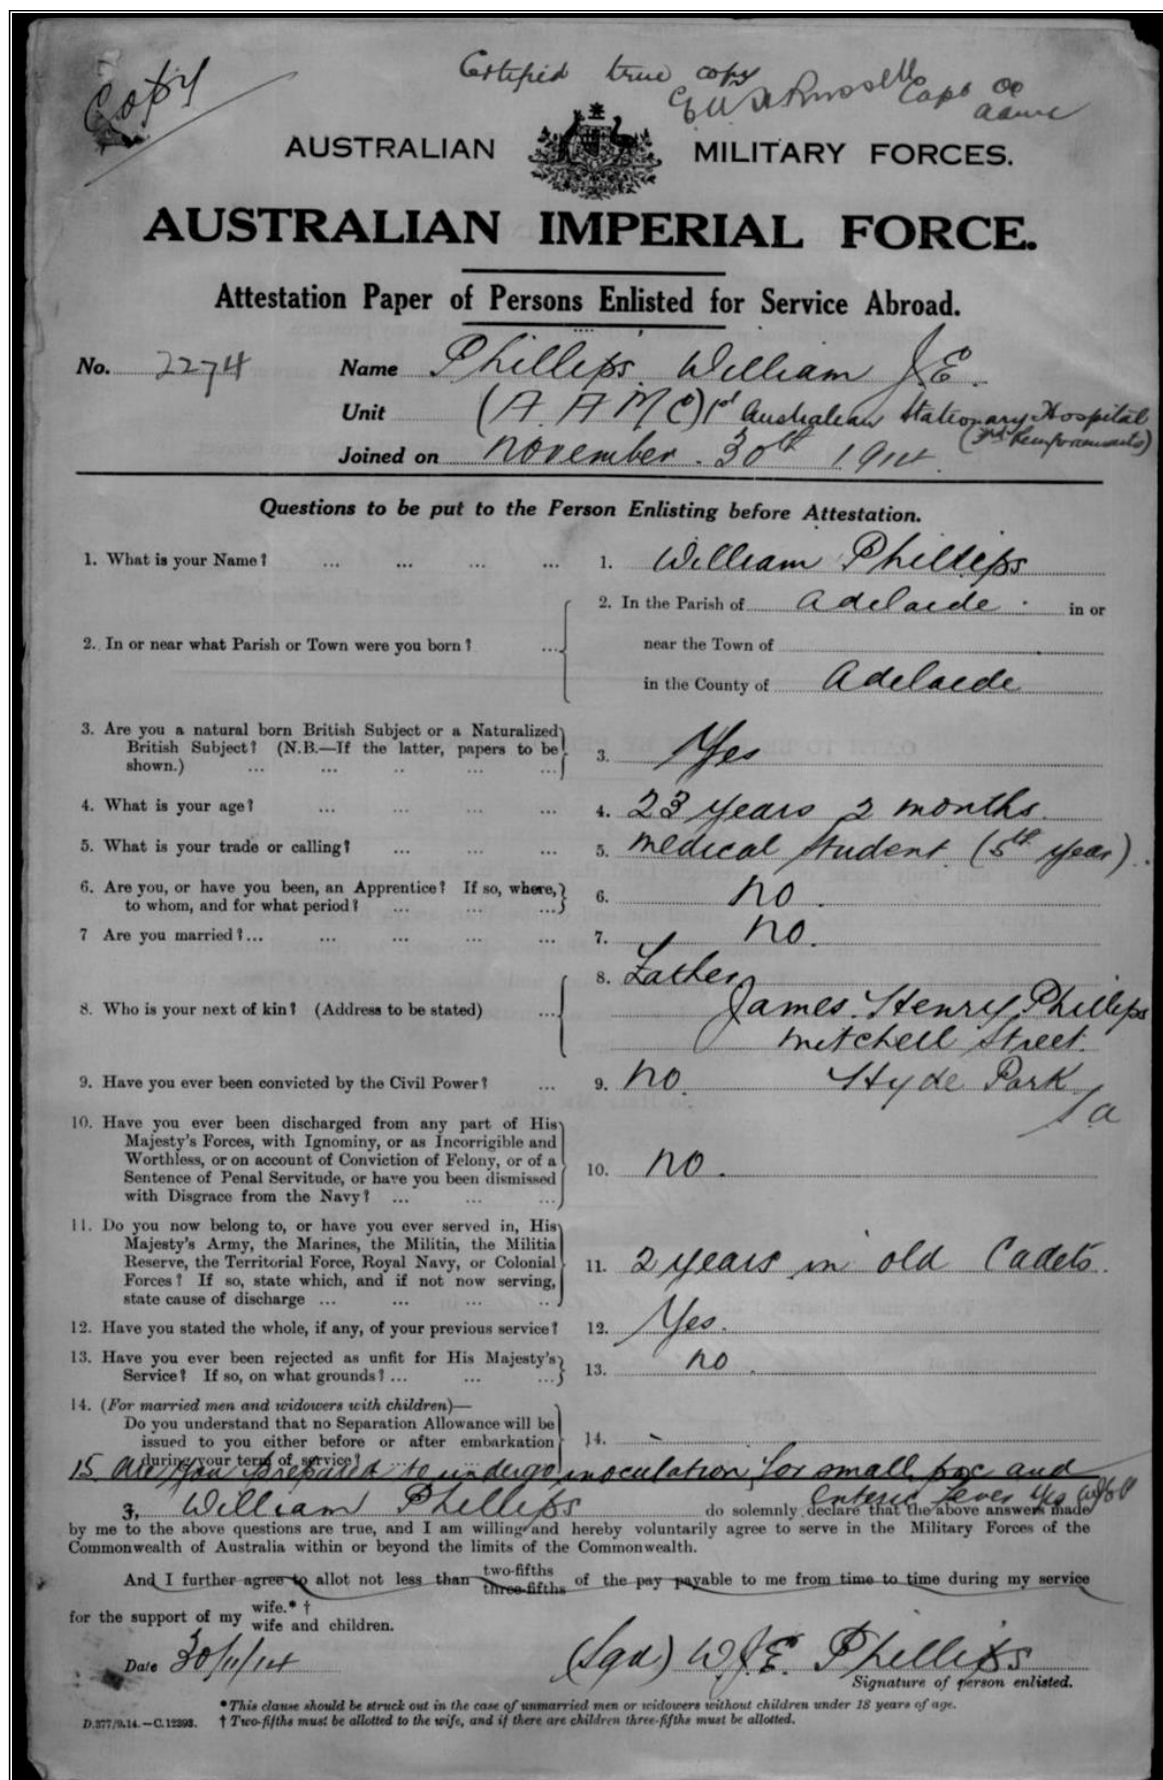 Copy
Certified true copy
Capt
AUSTRALIAN MILITARY FORCES.
AUSTRALIAN IMPERIAL FORCE.
Attestation Paper of Persons Enlisted for Service Abroad.
No. 2274 Name Phillips. William J E.
Unit (A. A M C) 1st Australian Stationary Hospital
(3rd Reinforcements)
Joined on November. 30th 1914.
Questions to be put to the Person Enlisting before Attestation.
1. What is your Name? ... ... ... ... 1. William Phillips
2. In or near what Parish or Town were you born? ... 2. In the Parish of Adelaide. in or
near the Town of
in the County of Adelaide
3. Are you a natural born British Subject or a Naturalized
British Subject? (N.B.—If the latter, papers to be
shown.) ... ... .. ... ... 3. Yes
4. What is your age? ... ... ... ... 4. 23 years 2 months.
5. What is your trade or calling? ... ... ... 5. medical student (5th year).
6. Are you, or have you been, an Apprentice? If so, where,
to whom, and for what period? ... ... ... 6. no.
7 Are you married?... ... ... ... ... 7. no.
8. Who is your next of kin? (Address to be stated) ... 8. Father
James. Henry Phillips
Mitchell Street.
Hyde Park
S a
9. Have you ever been convicted by the Civil Power? ... 9. no
10. Have you ever been discharged from any part of His
Majesty's Forces, with Ignominy, or as Incorrigible and
Worthless, or on account of Conviction of Felony, or of a
Sentence of Penal Servitude, or have you been dismissed
with Disgrace from the Navy? ... ... ... 10. no.
11. Do you now belong to, or have you ever served in, His
Majesty's Army, the Marines, the Militia, the Militia
Reserve, the Territorial Force, Royal Navy, or Colonial
Forces? If so, state which, and if not now serving,
state cause of discharge ... ... ... .. 11. 2 years in old Cadets.
12. Have you stated the whole, if any, of your previous service? 12. Yes.
13. Have you ever been rejected as unfit for His Majesty's
Service? If so, on what grounds? ... ... ... 13. no.
14. (For married men and widowers with children)—
Do you understand that no Separation Allowance will be
issued to you either before or after embarkation
during your term of service? 14.
15 Are you prepared to undergo inoculation for small pox and
Enteric Fever Yes WJEP
I, William Phillips do solemnly declare that the above answers made
by me to the above questions are true, and I am willing and hereby voluntarily agree to serve in the Military Forces of the
Commonwealth of Australia within or beyond the limits of the Commonwealth.
And I further agree to allot not less than two-fifths three-fifths of the pay payable to me from time to time during my service
for the support of my wife.* † wife and children.
Date 30/11/14 (Sgd) W.J.E. Phillips
Signature of person enlisted.
* This clause should be struck out in the case of unmarried men or widowers without children under 18 years of age.
D.377/9.14.—C.12393. † Two-fifths must be allotted to the wife, and if there are children three-fifths must be allotted.